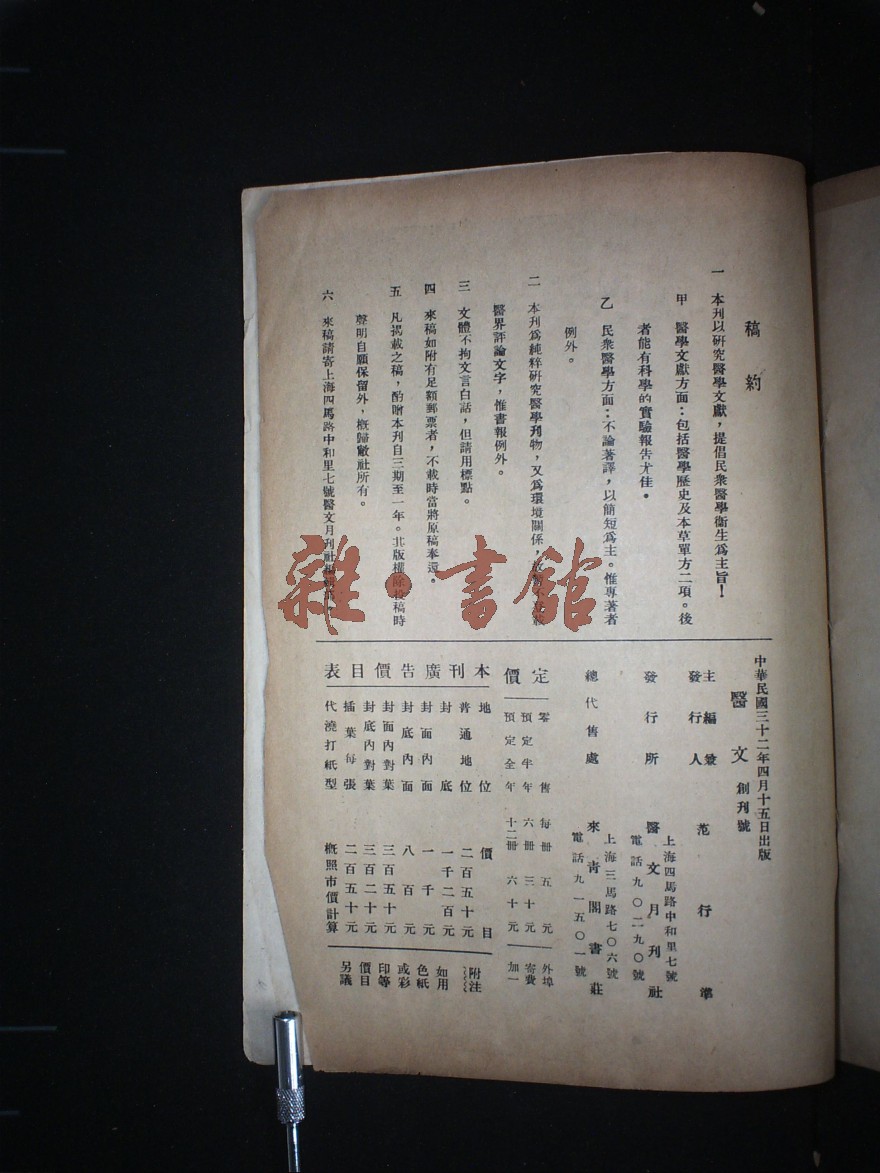 稿約
一 本刊以研究醫學文獻，提倡民衆醫學衞生爲主旨！
甲 醫學文獻方面：包括醫學歷史及本草單方二項。後
者能有科學的實驗報告尤佳。
乙 民衆醫學方面：不論著譯，以簡短爲主。惟專著者
例外。
二 本刊爲純粹研究醫學刊物，又爲環境關係，
醫界評論文字，惟書報例外。
三 文體不拘文言白話，但請用標點。
四 來稿如附有足額郵票者，不載時當將原稿奉還。
五 凡揭載之稿，酌贈本刊自三期至一年。其版權除投稿時
聲明自願保留外，概歸敝社所有。
六 來稿請寄上海四馬路中和里七號醫文月刊社
中華民國三十二年四月十五日出版
醫文 創刊號
主編兼
發行人 范行準
發行所 醫文月刊社
上海四馬路中和里七號
電話九〇二九〇號
總代售處 來青閣書莊
上海三馬路七〇六號
電話九一五〇一號
定價
零售 每冊 五元
預定半年 六冊 三十元
預定全年 十二冊 六十元
外埠
寄費
加一
本刊廣告價目表
地位 價目
普通地位 二百五十元
封底 一千二百元
封面內面 一千元
封底內面 八百元
封面內對葉 三百五十元
封底內對葉 三百二十元
插葉每張 二百五十元
代澆打紙型 概照市價計算
附注
如用
色紙
或彩
印等
價目
另議
雜·書館